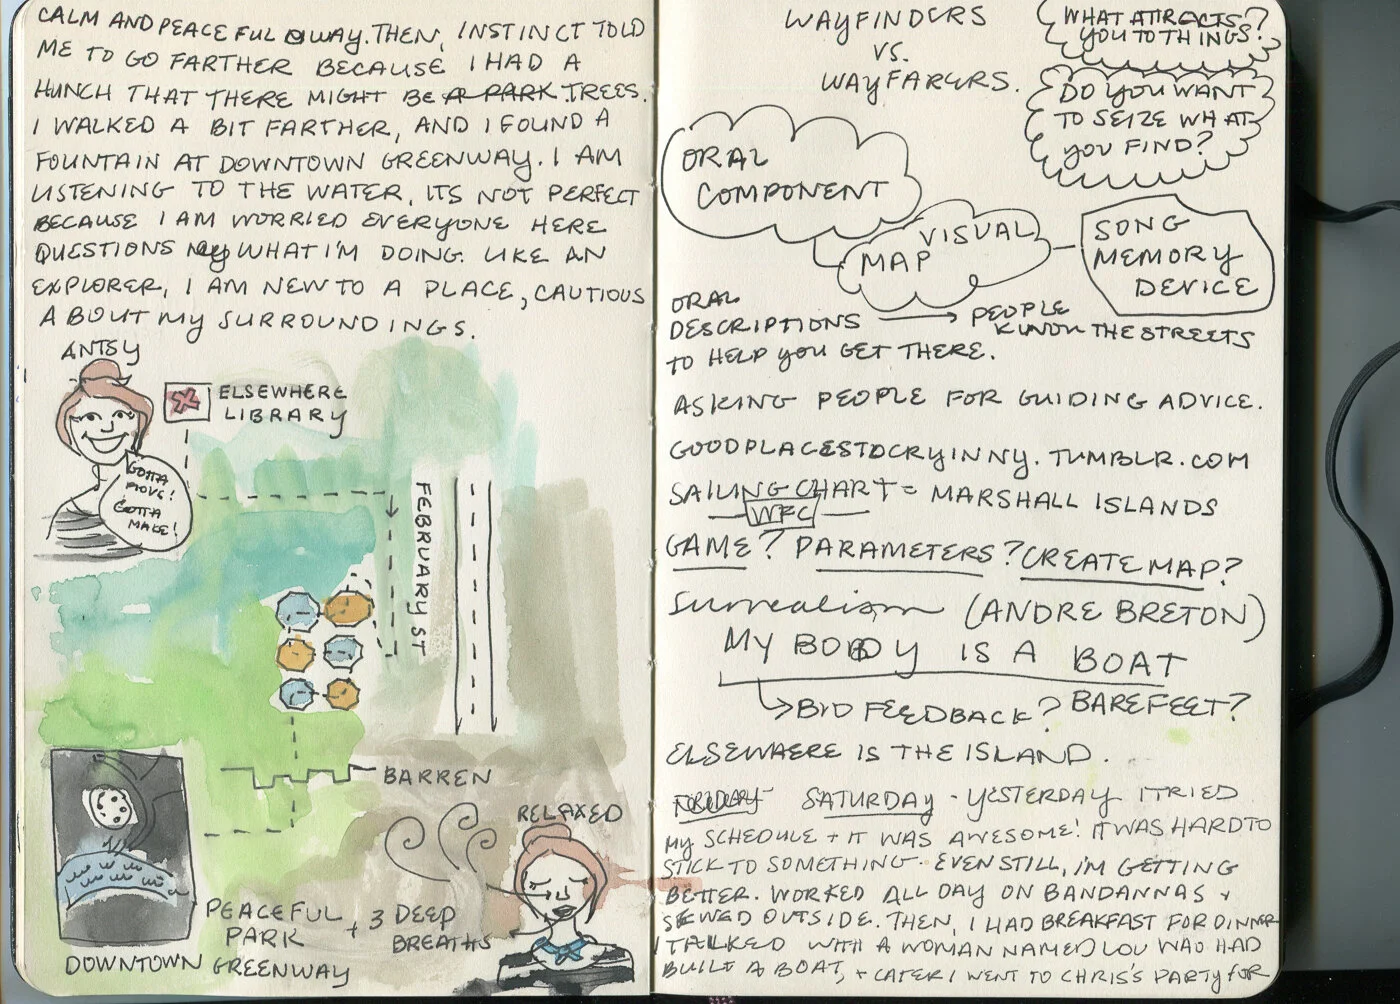 CALM AND PEACEFUL WAY. THEN, INSTINCT TOLD
ME TO GO FARTHER BECAUSE I HAD A
HUNCH THAT THERE MIGHT BE A PARK TREES.
I WALKED A BIT FARTHER, AND I FOUND A
FOUNTAIN AT DOWNTOWN GREENWAY. I AM
LISTENING TO THE WATER, ITS NOT PERFECT
BECAUSE I AM WORRIED EVERYONE HERE
QUESTIONS WHAT I'M DOING. LIKE AN
EXPLORER, I AM NEW TO A PLACE, CAUTIOUS
ABOUT MY SURROUNDINGS.
ANTSY
ELSEWHERE
LIBRARY
GOTTA
MOVE!
GOTTA
MAKE!
FEBRUARY ST
BARREN
RELAXED
PEACEFUL
PARK
+ 3 DEEP
BREATHS
DOWNTOWN GREENWAY
WAYFINDERS
VS.
WAYFARERS.
WHAT ATTRACTS
YOU TO THINGS?
DO YOU WANT
TO SEIZE WHAT
YOU FIND?
ORAL
COMPONENT
VISUAL
MAP
SONG
MEMORY
DEVICE
ORAL
DESCRIPTIONS → PEOPLE
KNOW THE STREETS
TO HELP YOU GET THERE.
ASKING PEOPLE FOR GUIDING ADVICE.
GOODPLACESTOCRYINNY.TUMBLR.COM
SAILING CHART = MARSHALL ISLANDS
WFC
GAME? PARAMETERS? CREATE MAP?
Surrealism (ANDRE BRETON)
MY BODY IS A BOAT
BIO FEEDBACK? BAREFEET?
ELSEWHERE IS THE ISLAND.
SATURDAY - YESTERDAY I TRIED
MY SCHEDULE + IT WAS AWESOME! IT WAS HARD TO
STICK TO SOMETHING. EVEN STILL, I'M GETTING
BETTER. WORKED ALL DAY ON BANDANNAS +
SEWED OUTSIDE. THEN, I HAD BREAKFAST FOR DINNER
I TALKED WITH A WOMAN NAMED LOU WHO HAD
BUILT A BOAT, + LATER I WENT TO CHRIS'S PARTY FOR